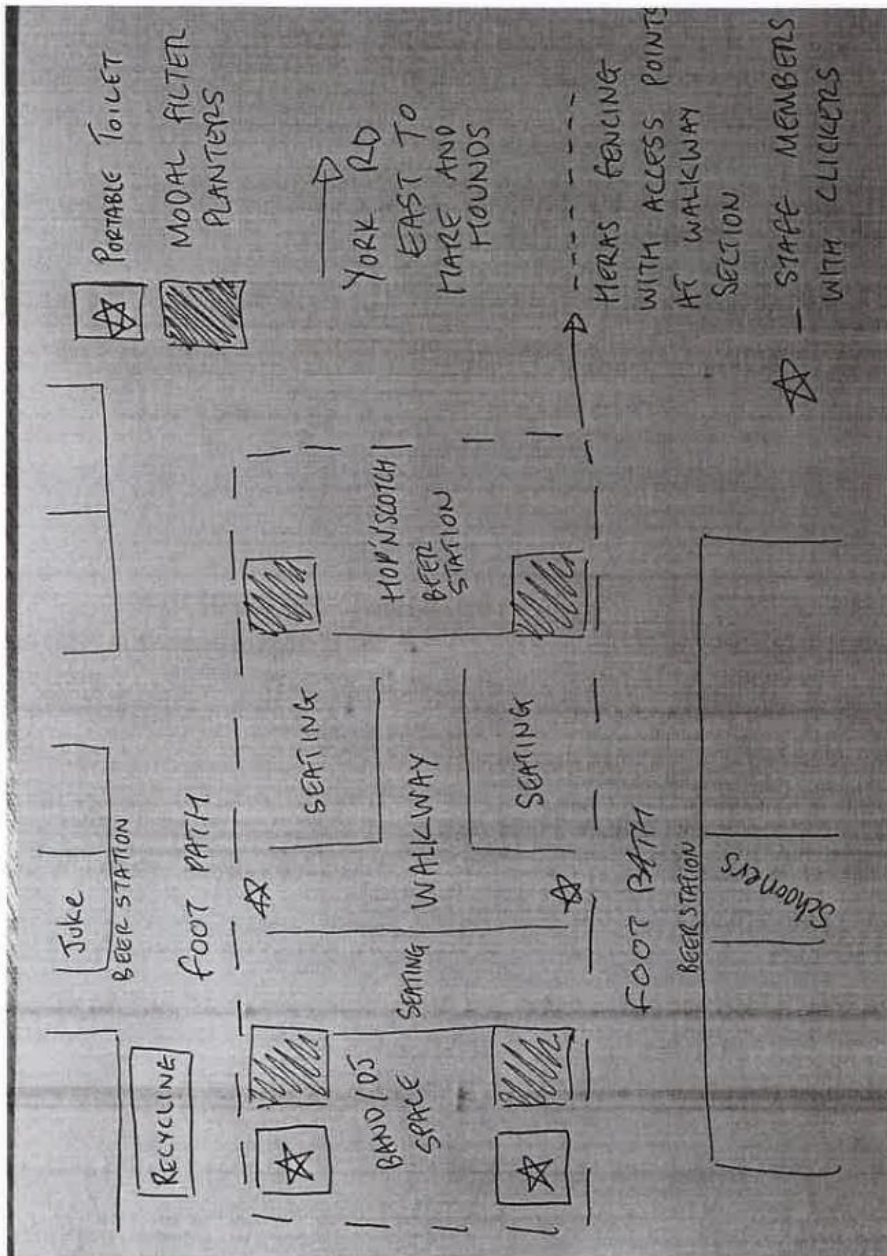 Juke
BEER STATION
RECYCLING
FOOT PATH
SEATING
WALKWAY
SEATING
SEATING
BAND/DJ
SPACE
HOP'N'SCOTCH
BEER
STATION
FOOT PATH
BEER STATION
Schooners
PORTABLE TOILET
MODAL FILTER
PLANTERS
YORK RD
EAST TO
HARE AND
HOUNDS
HERAS FENCING
WITH ACCESS POINTS
AT WALKWAY
SECTION
— STAFF MEMBERS
WITH CLICKERS